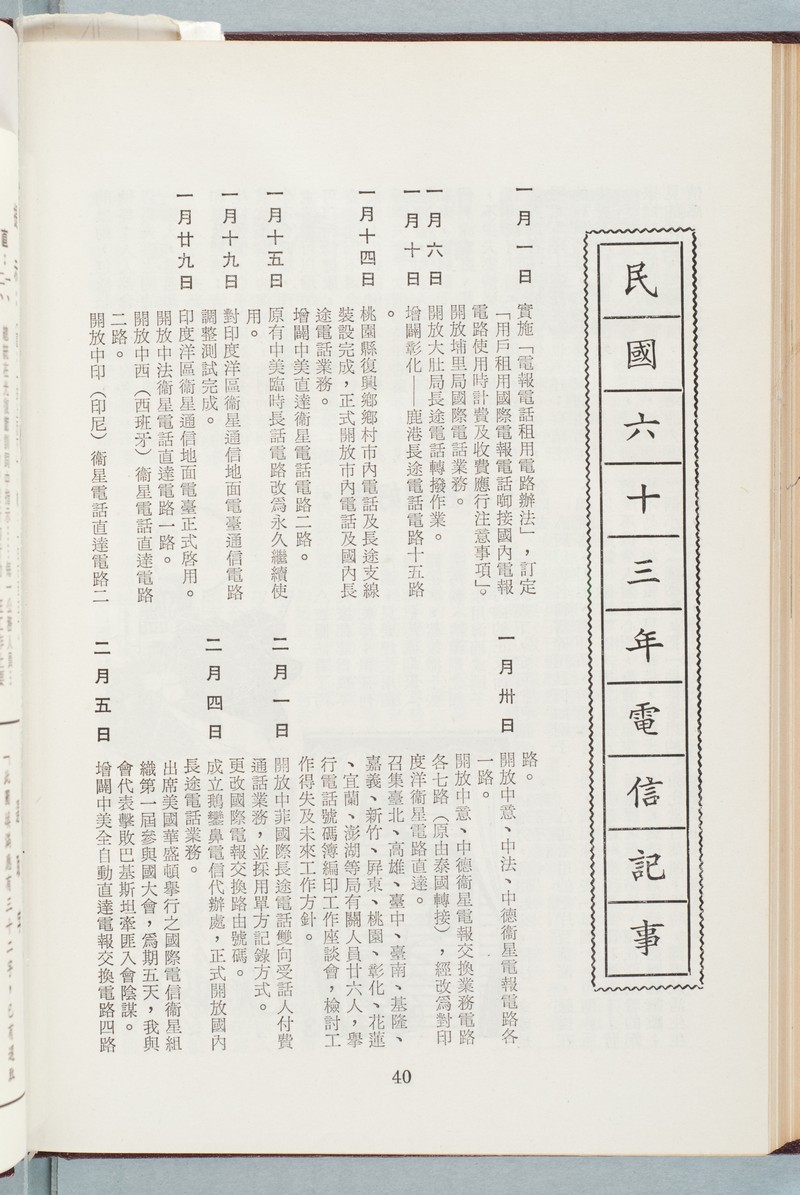 民國六十三年電信記事
一月一日
實施「電報電話租用電路辦法」，訂定
「用戶租用國際電報電話啣接國內電報
電路使用時計費及收費應行注意事項」。
開放埔里局國際電話業務。
一月六日
開放大肚局長途電話轉撥作業。
一月十日
增闢彰化——鹿港長途電話電路十五路
。
一月十四日
桃園縣復興鄉鄉村市內電話及長途支線
裝設完成，正式開放市內電話及國內長
途電話業務。
增闢中美直達衞星電話電路二路。
一月十五日
原有中美臨時長話電路改爲永久繼續使
用。
一月十九日
對印度洋區衞星通信地面電臺通信電路
調整測試完成。
一月廿九日
印度洋區衞星通信地面電臺正式啓用。
開放中法衞星電話直達電路一路。
開放中西（西班牙）衞星電話直達電路
二路。
開放中印（印尼）衞星電話直達電路二
路。
一月卅日
開放中意、中法、中德衞星電報電路各
一路。
開放中意、中德衞星電報交換業務電路
各七路（原由泰國轉接），經改爲對印
度洋衞星電路直達。
召集臺北、高雄、臺中、臺南、基隆、
嘉義、新竹、屏東、桃園、彰化、花蓮
、宜蘭、澎湖等局有關人員廿六人，舉
行電話號碼簿編印工作座談會，檢討工
作得失及未來工作方針。
二月一日
開放中菲國際長途電話雙向受話人付費
通話業務，並採用單方記錄方式。
更改國際電報交換路由號碼。
二月四日
成立鵝鑾鼻電信代辦處，正式開放國內
長途電話業務。
出席美國華盛頓舉行之國際電信衞星組
織第一屆參與國大會，爲期五天，我與
會代表擊敗巴基斯坦牽匪入會陰謀。
二月五日
增闢中美全自動直達電報交換電路四路
40